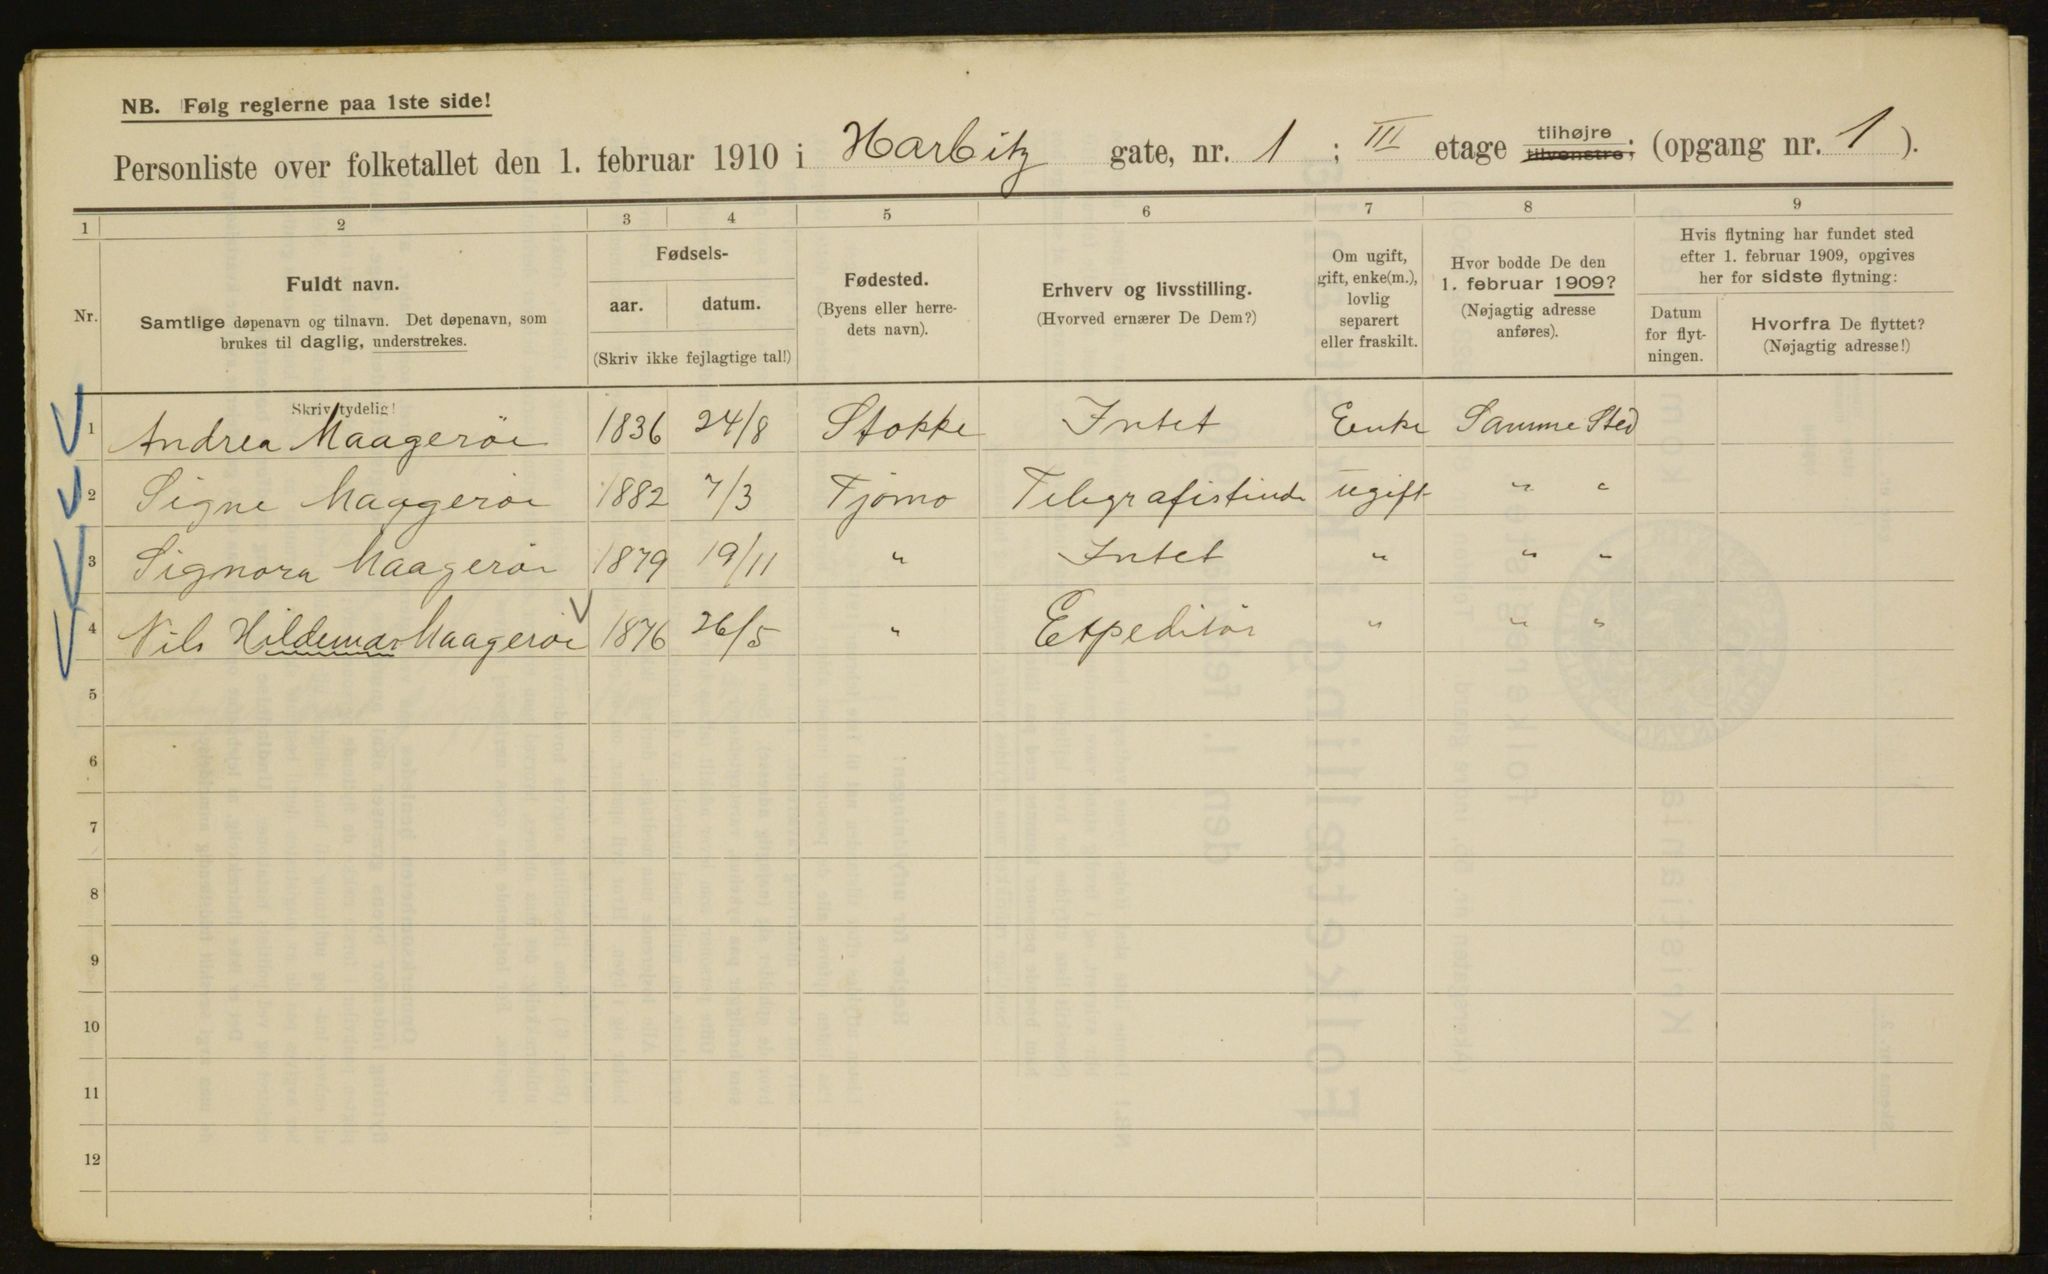 NB. Følg reglerne paa 1ste side!
Personliste over folketallet den 1. februar 1910 i Harbitz gate, nr. 1 ; III etage tilhøjre tilvenstre; (opgang nr. 1 ).
1 2 3 4 5 6 7 8 9
Nr.
Fuldt navn.
Samtlige døpenavn og tilnavn. Det døpenavn, som
brukes til daglig, understrekes.
Fødsels-
aar. datum.
(Skriv ikke fejlagtige tal!)
Fødested.
(Byens eller herre-
dets navn).
Erhverv og livsstilling.
(Hvorved ernærer De Dem?)
Om ugift,
gift, enke(m.),
lovlig
separert
eller fraskilt.
Hvor bodde De den
1. februar 1909?
(Nøjagtig adresse
anføres).
Hvis flytning har fundet sted
efter 1. februar 1909, opgives
her for sidste flytning:
Datum
for flyt-
ningen.
Hvorfra De flyttet?
(Nøjagtig adresse!)
Skriv tydelig!
1 Andrea Maagerøe 1836 24/8 Stokke Intet Enke Samme Sted
2 Signe Maagerøe 1882 7/3 Tjømo Telegrafistinde ugift " "
3 Signora Maagerøe 1879 19/11 " Intet " " "
4 Nils Hildemar Maagerøe 1876 26/5 " Expeditør " " "
5
6
7
8
9
10
11
12